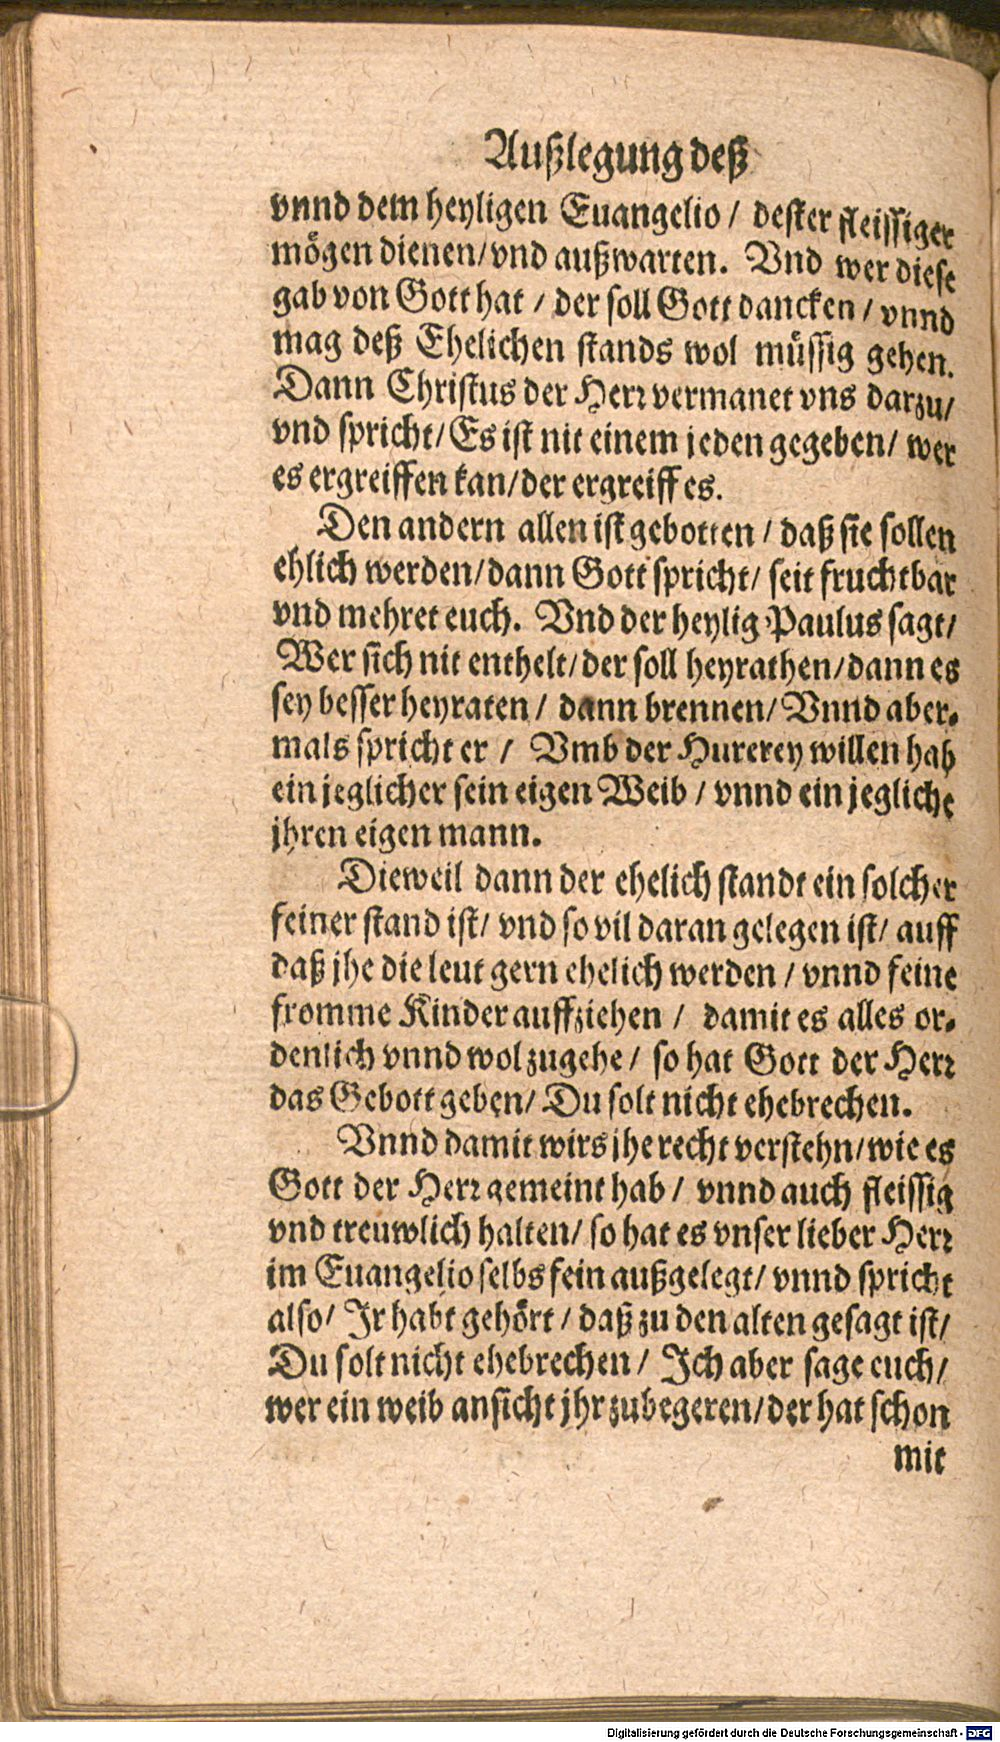 Außlegung deß
vnnd dem heyligen Euangelio / dester fleissiger
mögen dienen/ vnd außwarten. Vnd wer diese
gab von Gott hat / der soll Gott dancken / vnnd
mag deß Ehelichen stands wol müssig gehen.
Dann Christus der Herr vermanet vns darzu/
vnd spricht/ Es ist nit einem jeden gegeben/ wer
es ergreiffen kan/ der ergreiff es.
Den andern allen ist gebotten / daß sie sollen
ehlich werden/ dann Gott spricht/ seit fruchtbar
vnd mehret euch. Vnd der heylig Paulus sagt/
Wer sich nit enthelt/ der soll heyrathen/ dann es
sey besser heyraten / dann brennen/ Vnnd aber-
mals spricht er / Vmb der Hurerey willen hab
ein jeglicher sein eigen Weib / vnnd ein jegliche
jhren eigen mann.
Dieweil dann der ehelich standt ein solcher
feiner stand ist/ vnd so vil daran gelegen ist/ auff
daß jhe die leut gern ehelich werden / vnnd feine
fromme Kinder auffziehen / damit es alles or-
denlich vnnd wol zugehe / so hat Gott der Herr
das Gebott geben/ Du solt nicht ehebrechen.
Vnnd damit wirs jhe recht verstehn/ wie es
Gott der Herr gemeint hab / vnnd auch fleissig
vnd treuwlich halten/ so hat es vnser lieber Herr
im Euangelio selbs fein außgelegt/ vnnd spricht
also/ Jr habt gehört / daß zu den alten gesagt ist/
Du solt nicht ehebrechen / Jch aber sage euch/
wer ein weib ansicht jhr zubegeren/ der hat schon
mit
Digitalisierung gefördert durch die Deutsche Forschungsgemeinschaft - DFG